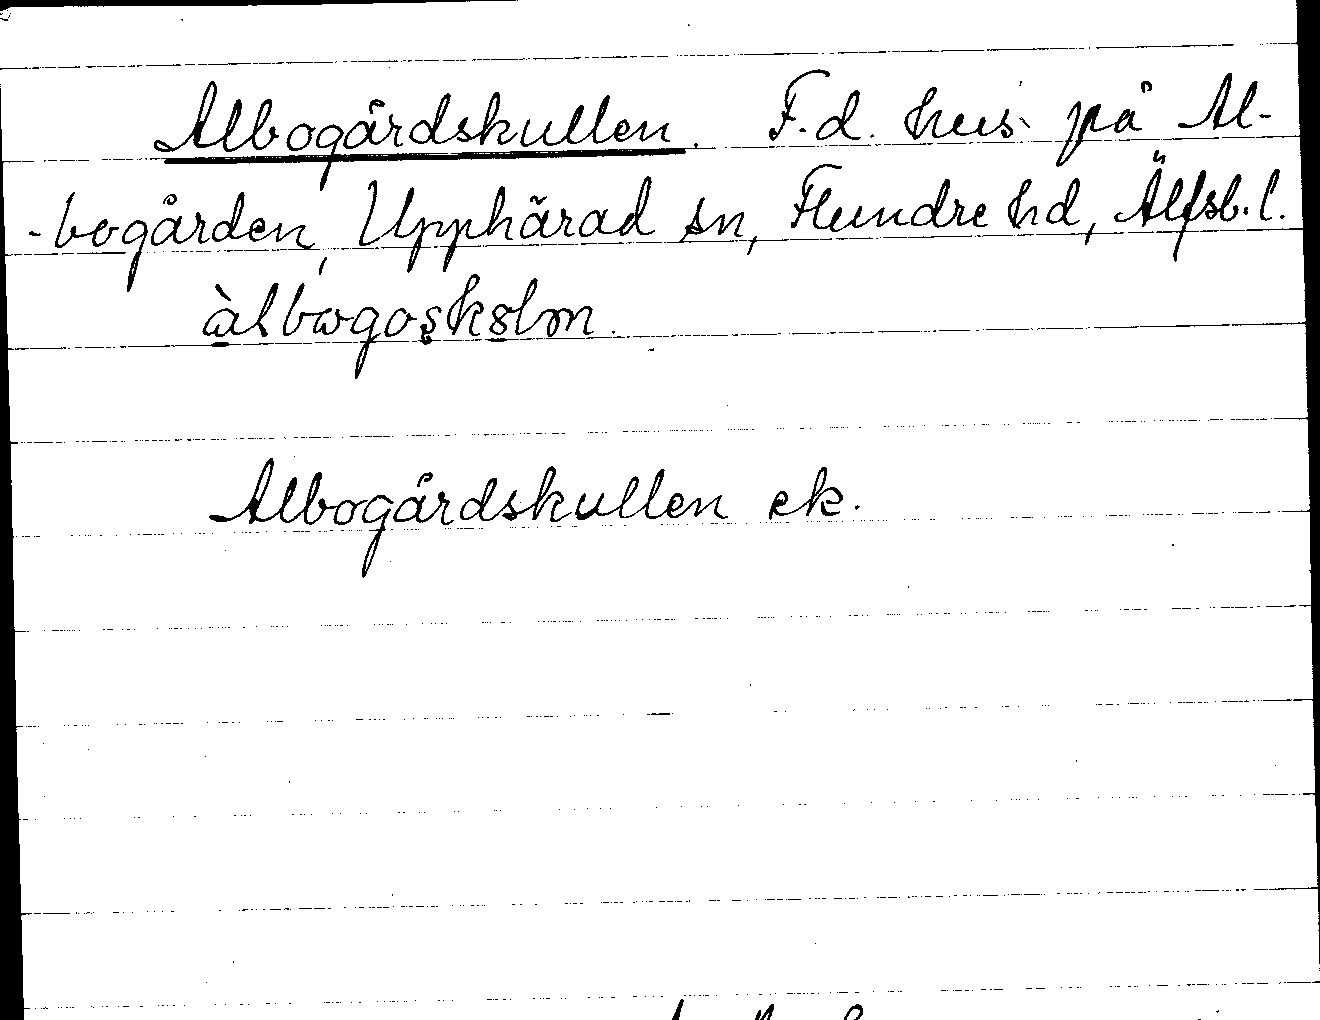 Albogårdskullen. F.d. hus på Al-
-bogården, Upphärad sn, Flundre hd, Älfsb. l.
Albogårdskullen ek.